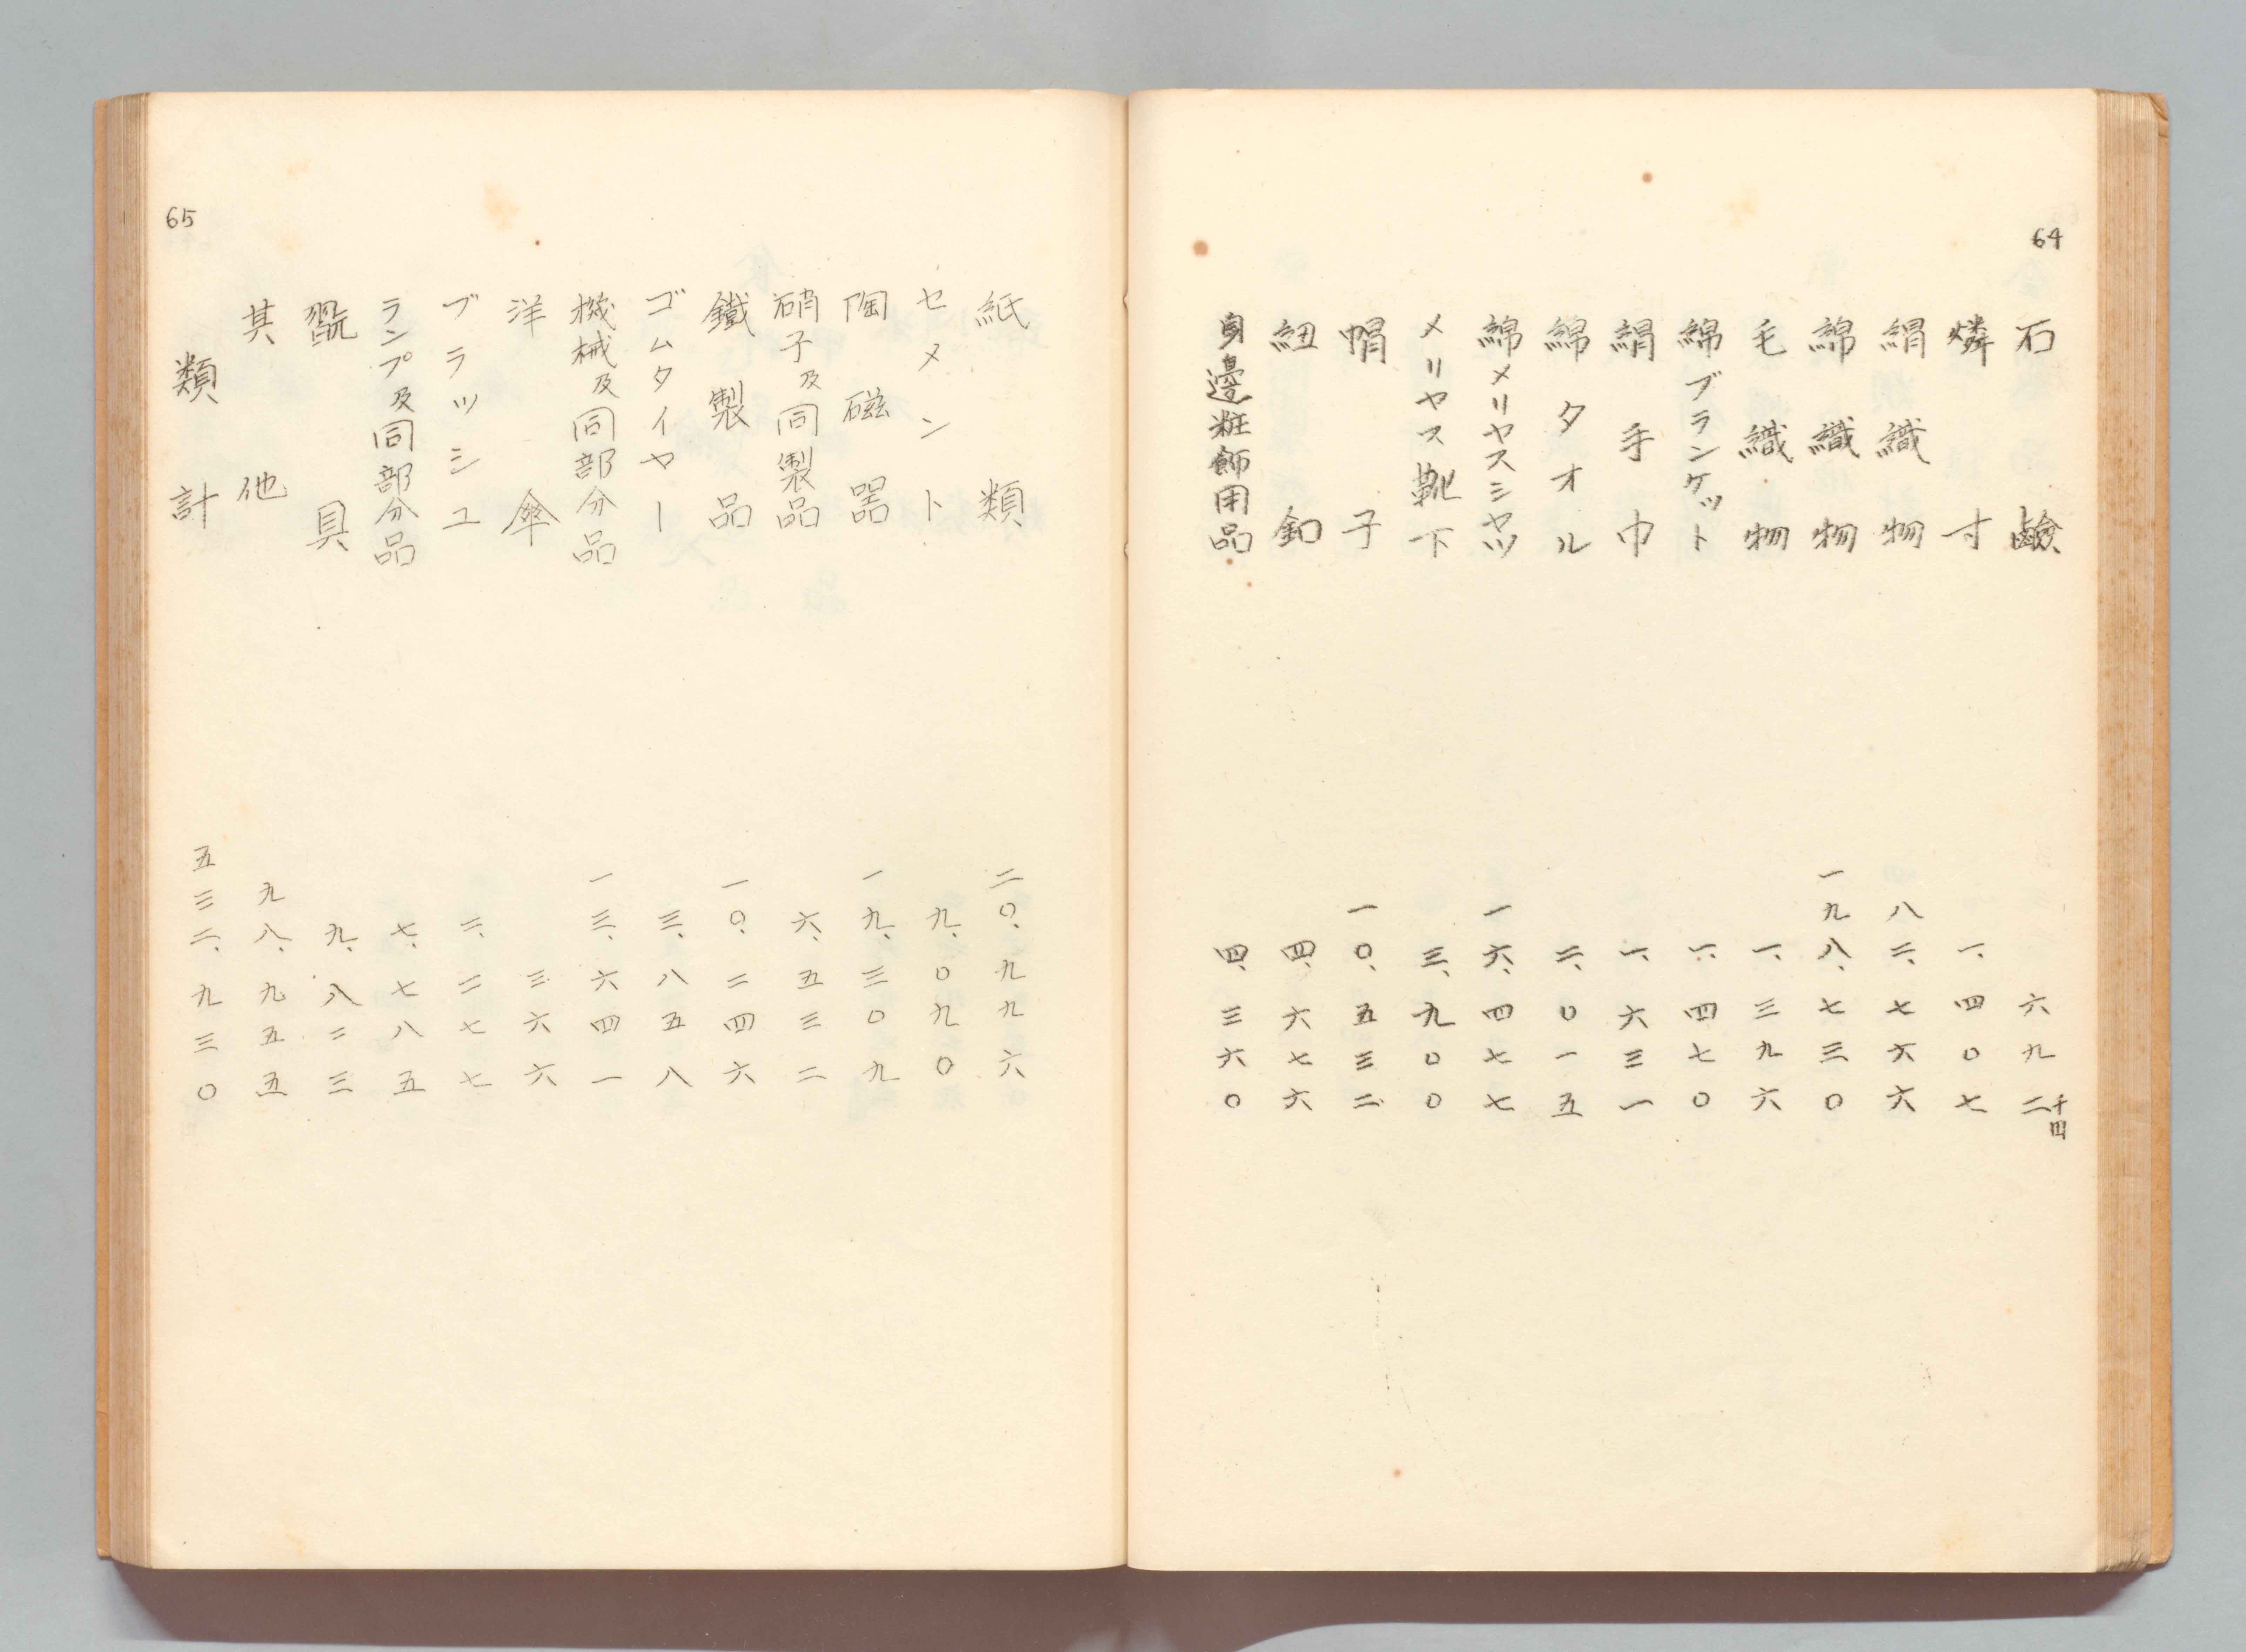 64
石鹸 六九二千円
燐寸 一、四〇七
絹織物 八二、七六六
綿織物 一九八、七三〇
毛織物 一、三九六
綿ブランケット 一、四七〇
絹手巾 一、六三一
綿タオル 二、〇一五
綿メリヤスシヤツ 一六、四七七
メリヤス靴下 三、九〇〇
帽子 一〇、五三二
紐釦 四、六七六
身邊粧飾用品 四、三六〇
65
紙類 二〇、九九六
セメント 九、〇九〇
陶磁器 一九、三〇九
硝子及同製品 六、五三二
鐵製品 一〇、二四六
ゴムタイヤー 三、八五八
機械及同部分品 一三、六四一
洋傘 三六六
ブラツシユ 二、二七七
ランプ及同部分品 七、七八五
翫具 九、八二三
其他 九八、九五五
類計 五三二、九三〇